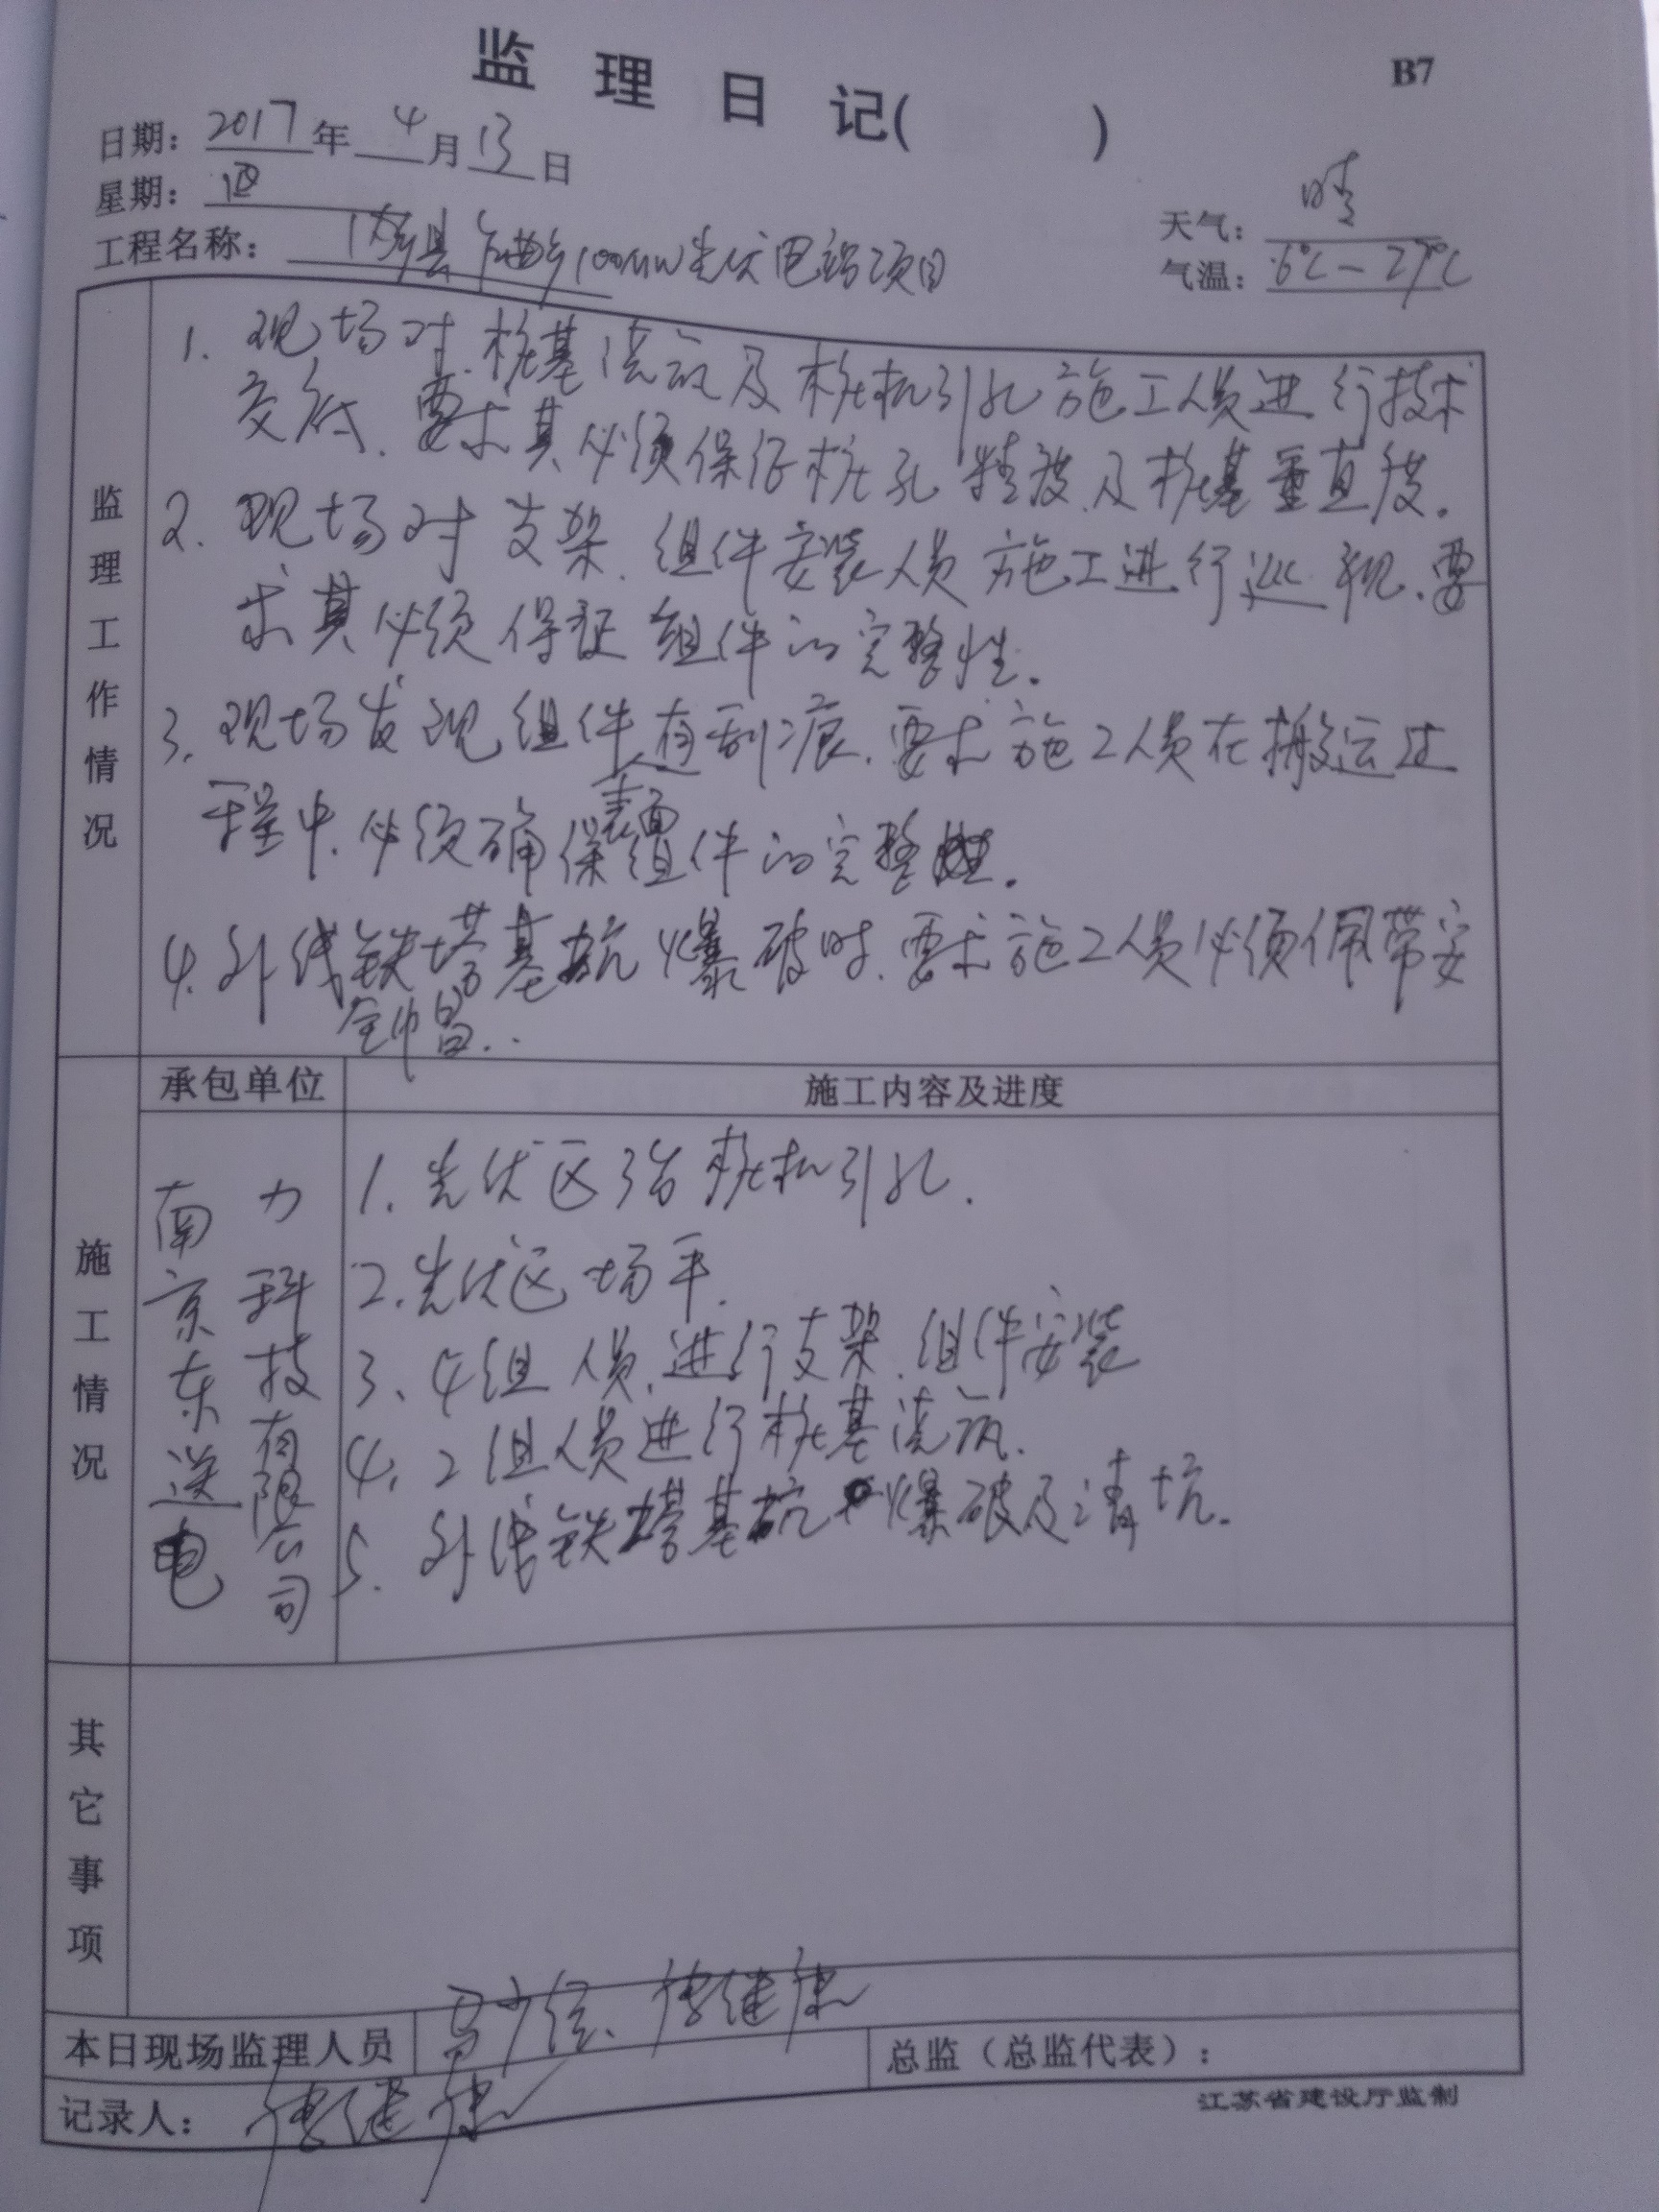 监理日记( )
B7
日期：2017年4月13日
星期：四
天气：晴
工程名称：县 100MW光伏电站项目
气温：6℃-27℃
监理工作情况
1. 现场对桩基浇筑及桩机引孔施工人员进行技术
交底.要求其必须保证桩孔精度及桩基垂直度.
2. 现场对支架.组件安装人员施工进行巡视.要
求其必须保证组件的完整性.
3. 现场发现组件有刮痕.要求施工人员在搬运过
程中.必须确保组件表面的完整性.
4. 外线铁塔基坑爆破时.要求施工人员必须佩带安
全帽..
承包单位
施工内容及进度
施工情况
南京东送电
力科技有限公司
1. 光伏区3台桩机引孔.
2. 光伏区场平.
3、4组人员进行支架.组件安装
4、2组人员进行桩基浇筑.
5. 外线铁塔基坑爆破及清坑.
其它事项
本日现场监理人员
总监（总监代表）：
记录人：
江苏省建设厅监制